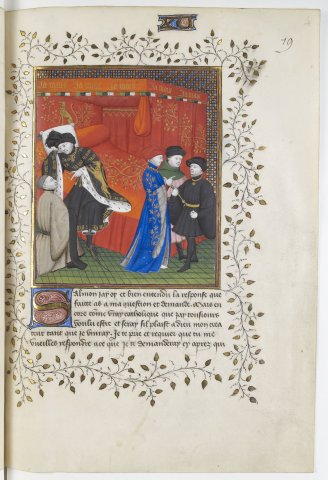 19
Salmon jay oy et bien entendu la response que
faicte as a ma question et demande. Mais en
core come vray catholique que jay tousiours
voulu estre et seray sil plaist a dieu mon crea
teur tant que je vivray. Je te prie et requier que tu me
vueilles respondre a ce que je te demanderay cy apres qui